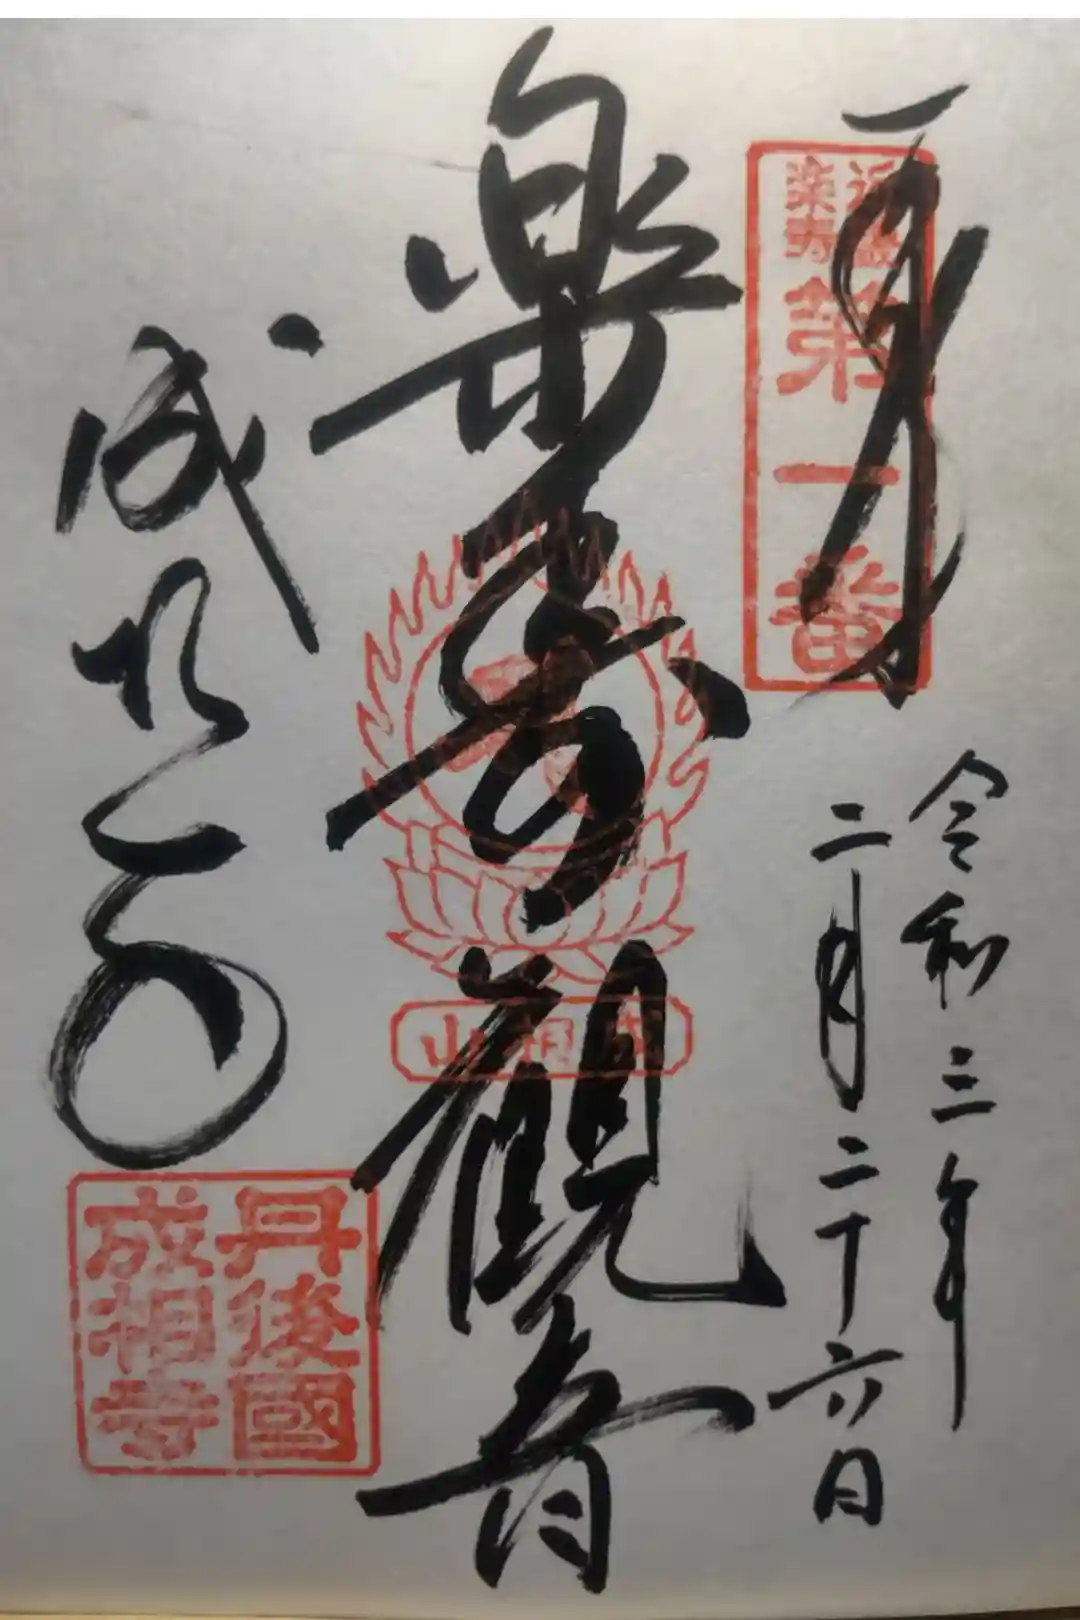 近畿
楽寿
第一番
令和三年
二月二十六日
樂寿觀音
成相山
成相寺
丹後國
成相寺